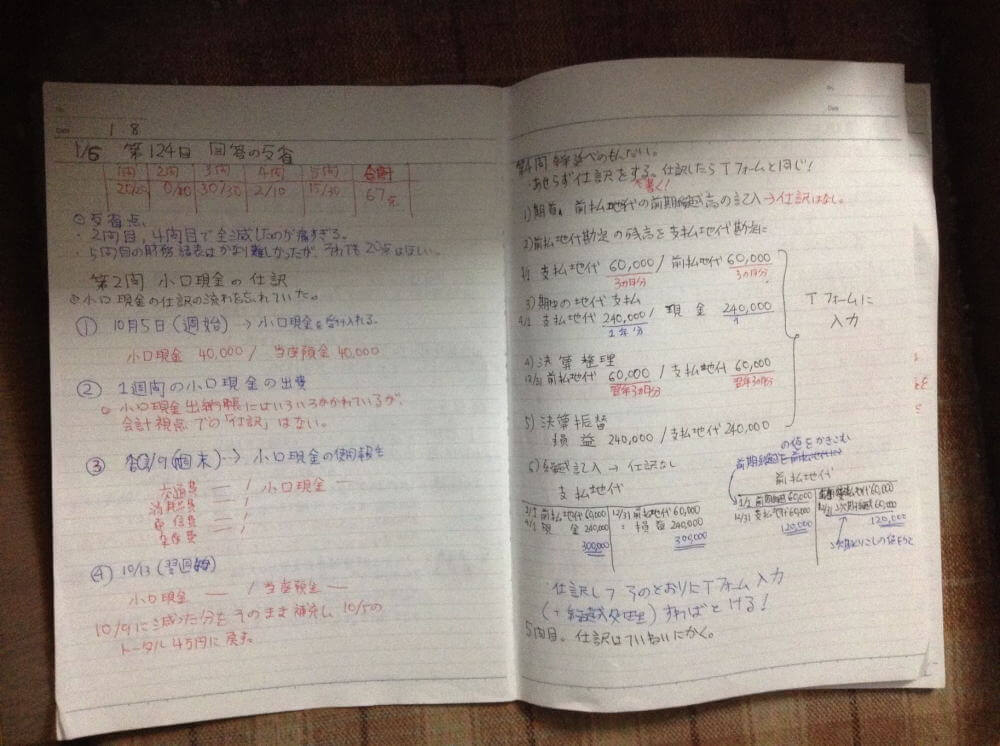 Date 1 8
1/5 第124回 回答の反省
1問 2問 3問 4問 5問 合計
20/20 0/20 30/30 2/10 15/30 67点
◎反省点、
・2問目、4問目で全滅したのが痛すぎる。
・5問目の財務諸表はかなり難しかったが、それでも20点はほしい。
第2問 小口現金の仕訳
◎小口現金の仕訳の流れを忘れていた。
① 10月5日(週始) → 小口現金を受け入れる。
小口現金 40,000 / 当座預金 40,000
② 1週間の小口現金の出費
○小口現金出納帳にはいろいろかかれているが、
会計視点での「仕訳」はない。
③ 10/9(週末)--> 小口現金の使用報告
交通費 ― / 小口現金 ―
消耗品費 ― /
通信費 ― /
雑費
④ 10/13(翌週始)
小口現金 ― / 当座預金 ―
10/9に減った分をそのまま補充し 10/5の
トータル4万円に戻る。
Date
第4問
あせらず仕訳をする。仕訳したらTフォームと同じ!
書く!
1)期首、前払地代の前期繰越高の記入→仕訳はなし。
2)前払地代勘定の残高を支払地代勘定に
1/1 支払地代 60,000 / 前払地代 60,000
3ヵ月分 3ヵ月分
3)期中の地代支払
4/1 支払地代 240,000 / 現金 240,000
1年分 〃
4)決算整理
12/31 前払地代 60,000 / 支払地代 60,000
翌年3ヵ月分 翌年3ヵ月分
5)決算振替
損益 240,000 / 支払地代 240,000
Tフォームに
入力
6)繰越記入 → 仕訳なし
の値をかきこむ
前期繰越を
支払地代
1/1 前払地代 60,000 12/31 前払地代 60,000
4/1 現金 240,000 〃 損益 240,000
300,000 300,000
前払地代
1/1 前期繰越 60,000 支払地代 60,000
12/31 支払地代 60,000 12/31 次期繰越 60,000
120,000 120,000
仕訳して そのとおりにTフォーム入力
(+繰越処理)すればとける!
5問目。仕訳はていねいにかく。